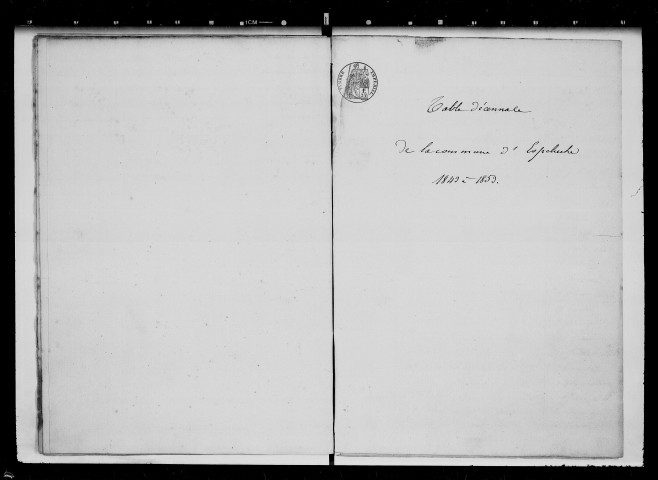 Table décennale
De la commune d' Espeluche
1843 à 1853.